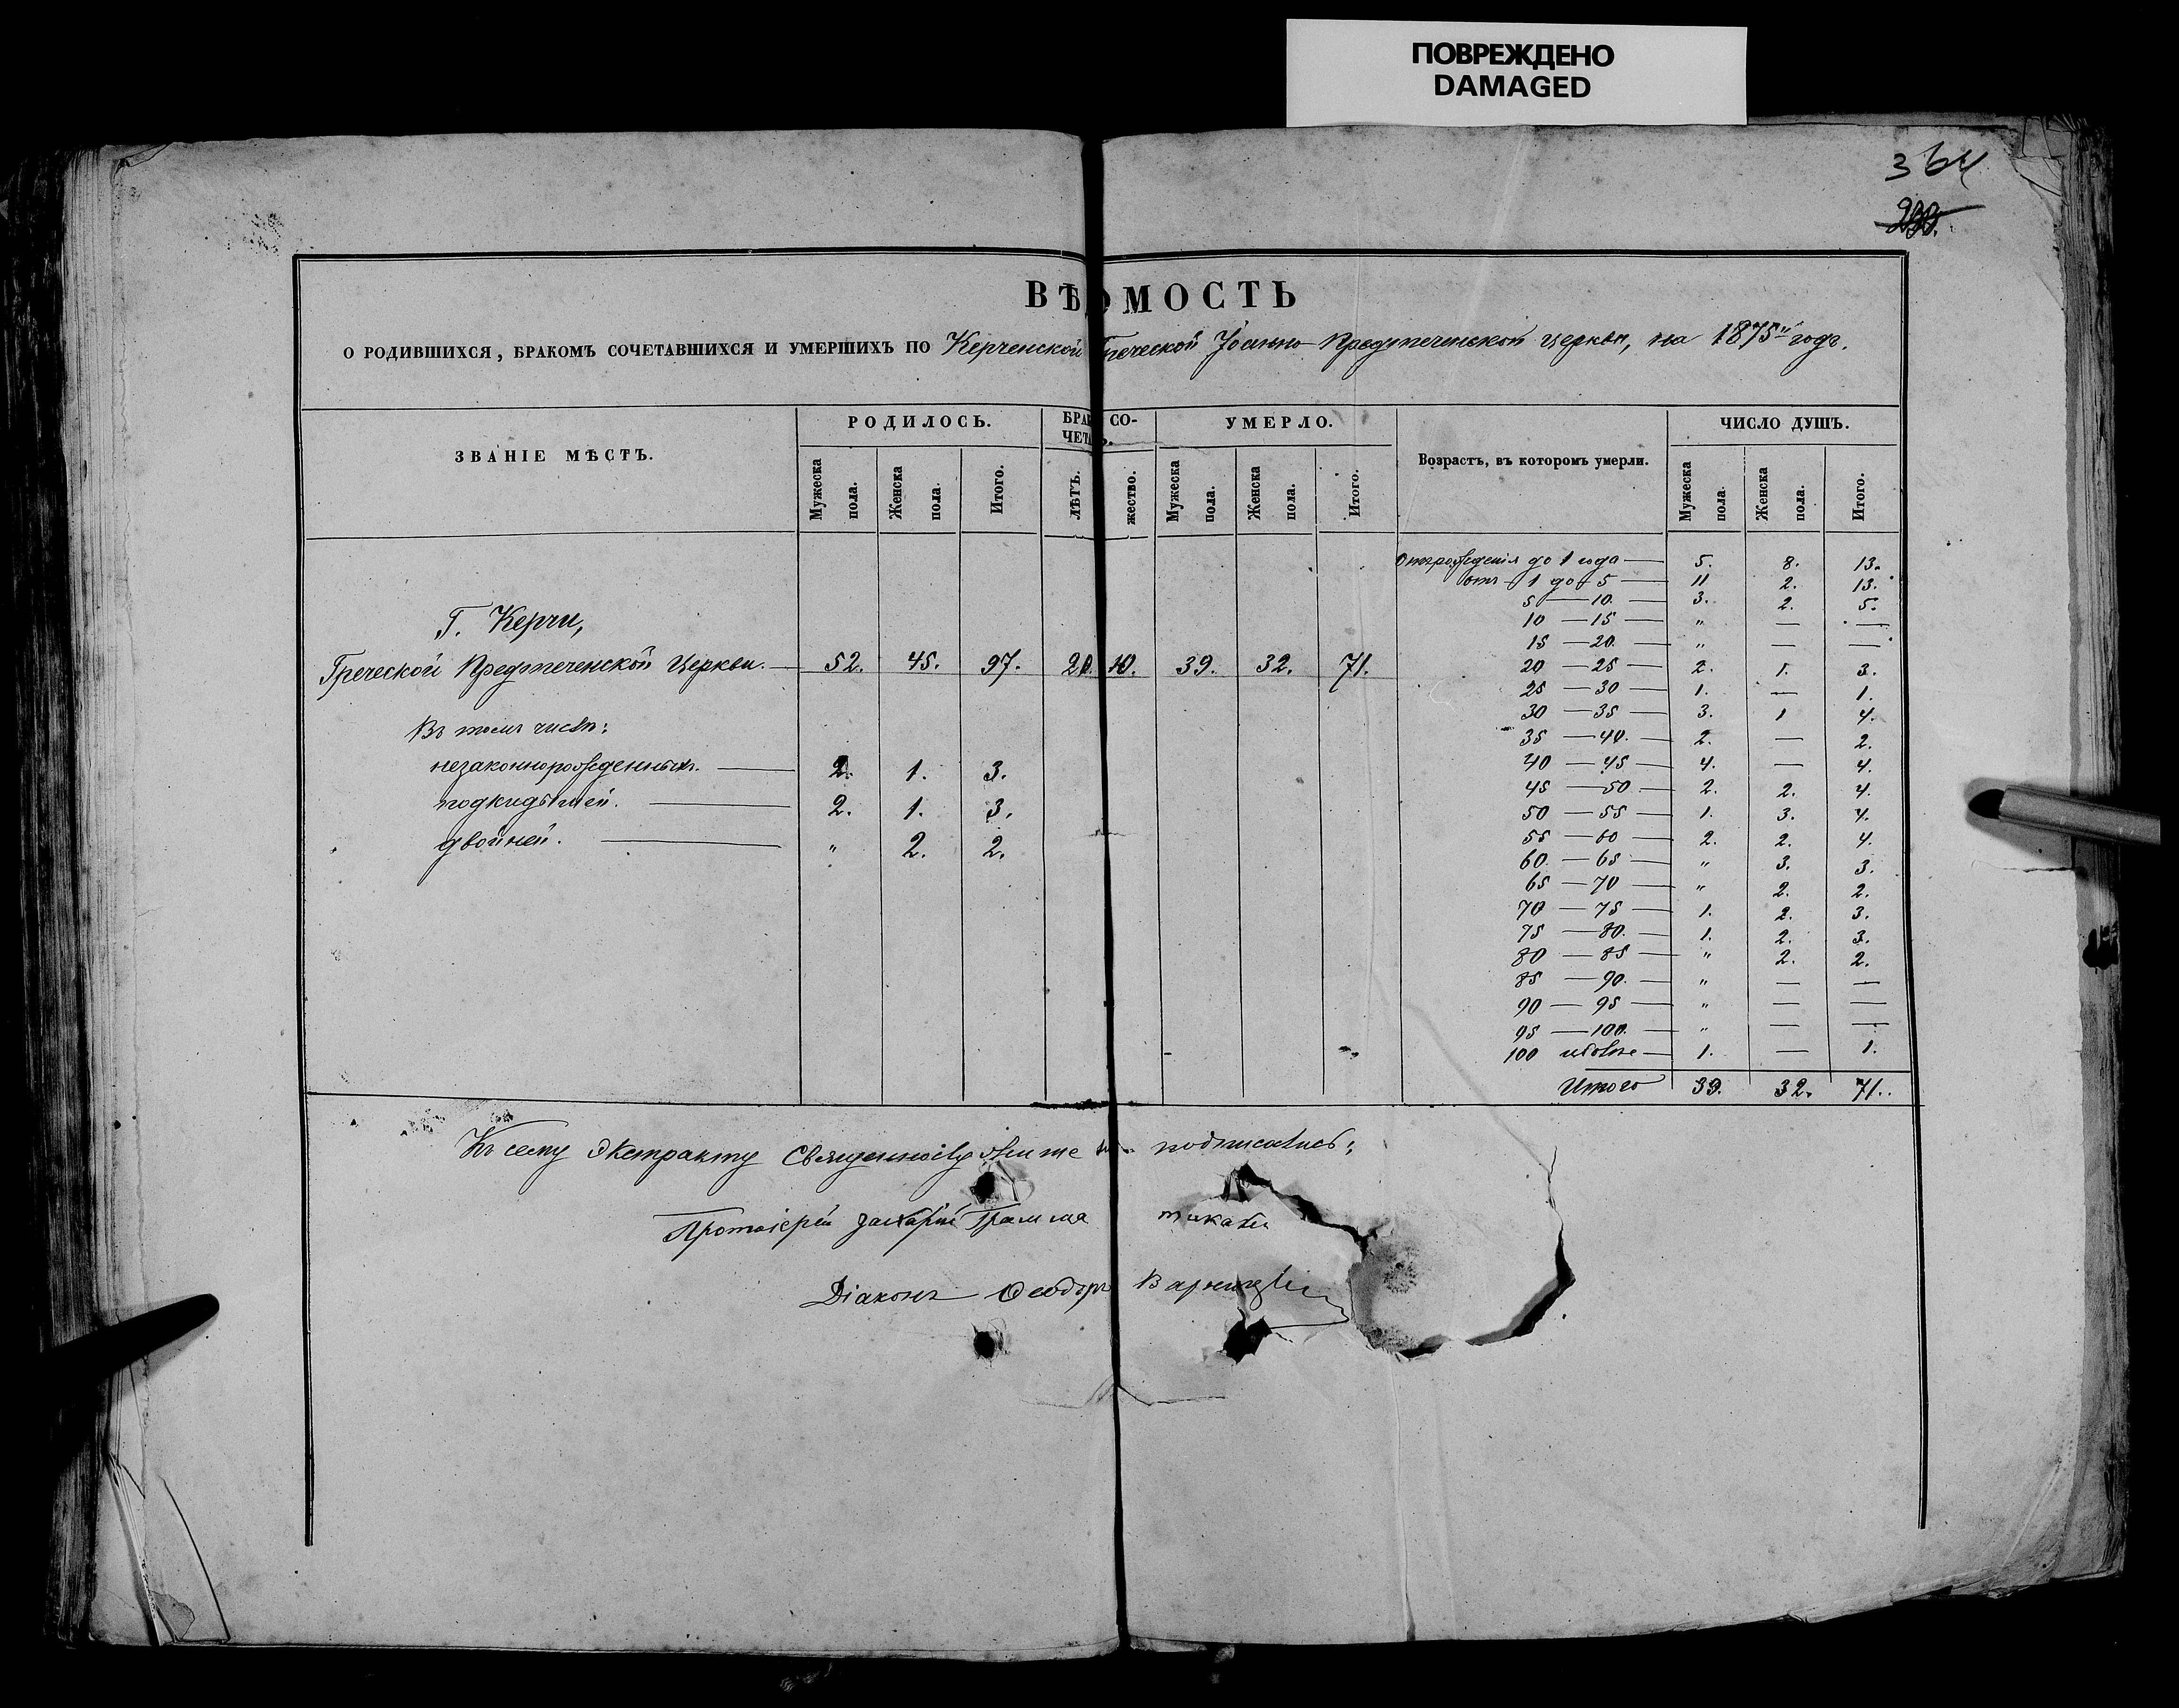 ПОВРЕЖДЕНО
DAMAGED
364
ВѢДОМОСТЬ
О РОДИВШИХСЯ, БРАКОМЪ СОЧЕТАВШИХСЯ И УМЕРШИХЪ ПО Керченской Греческой Іоанно-Предтеченской церкви, на 1875й годъ.
ЗВАНІЕ МѢСТЪ. РОДИЛОСЬ. БРАК СО- УМЕРЛО. Возрастъ, въ которомъ умерли. ЧИСЛО ДУШЪ.
ЧЕТА Ь.
Мужеска пола. Женска пола. Итого. ЛѢТЪ. жество. Мужеска пола. Женска пола. Итого. Мужеска пола. Женска пола. Итого.
Отъ рожденія до 1 года — 5. 8. 13.
отъ 1 до 5 — 11 2. 13.
5 — 10. — 3. 2. 5.
Г. Керчи,
10 — 15 — " — —
15 — 20. — " — —
Греческой Предтеченской Церкви. — 52. 45. 97. 20. 10. 39. 32. 71.
20 — 25 — 2. 1. 3.
25 — 30 — 1. — 1.
30 — 35 — 3. 1 4.
Въ томъ числѣ:
35 — 40. — 2. — 2.
незаконнорожденныхъ. — 2. 1. 3.
40 — 45 — 4. — 4.
45 — 50. — 2. 2. 4.
подкидышей. — 2. 1. 3.
50 — 55 — 1. 3. 4.
55 — 60 — 2. 2. 4.
двойней. — " 2. 2.
60. — 65 — " 3. 3.
65 — 70 — " 2. 2.
70 — 75 — 1. 2. 3.
75 — 80. — 1. 2. 3.
80 — 85 — " 2. 2.
85 — 90. — " — —
90 — 95 — " — —
95 — 100. — " — —
100 и болѣе — 1. — 1.
Итого 39. 32. 71.
Къ сему Экстракту Священнослужите подписались:
Протоіерей Захарій Грамма тикати
Діаконъ Ѳеодоръ